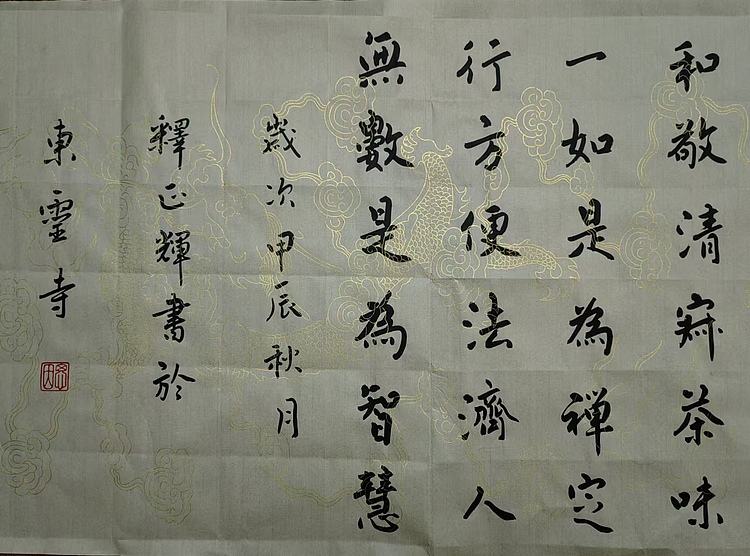 和敬清寂茶味
一如是為禅定
行方便法濟人
無數是為智慧
歲次甲辰秋月
釋正輝書於
東靈寺